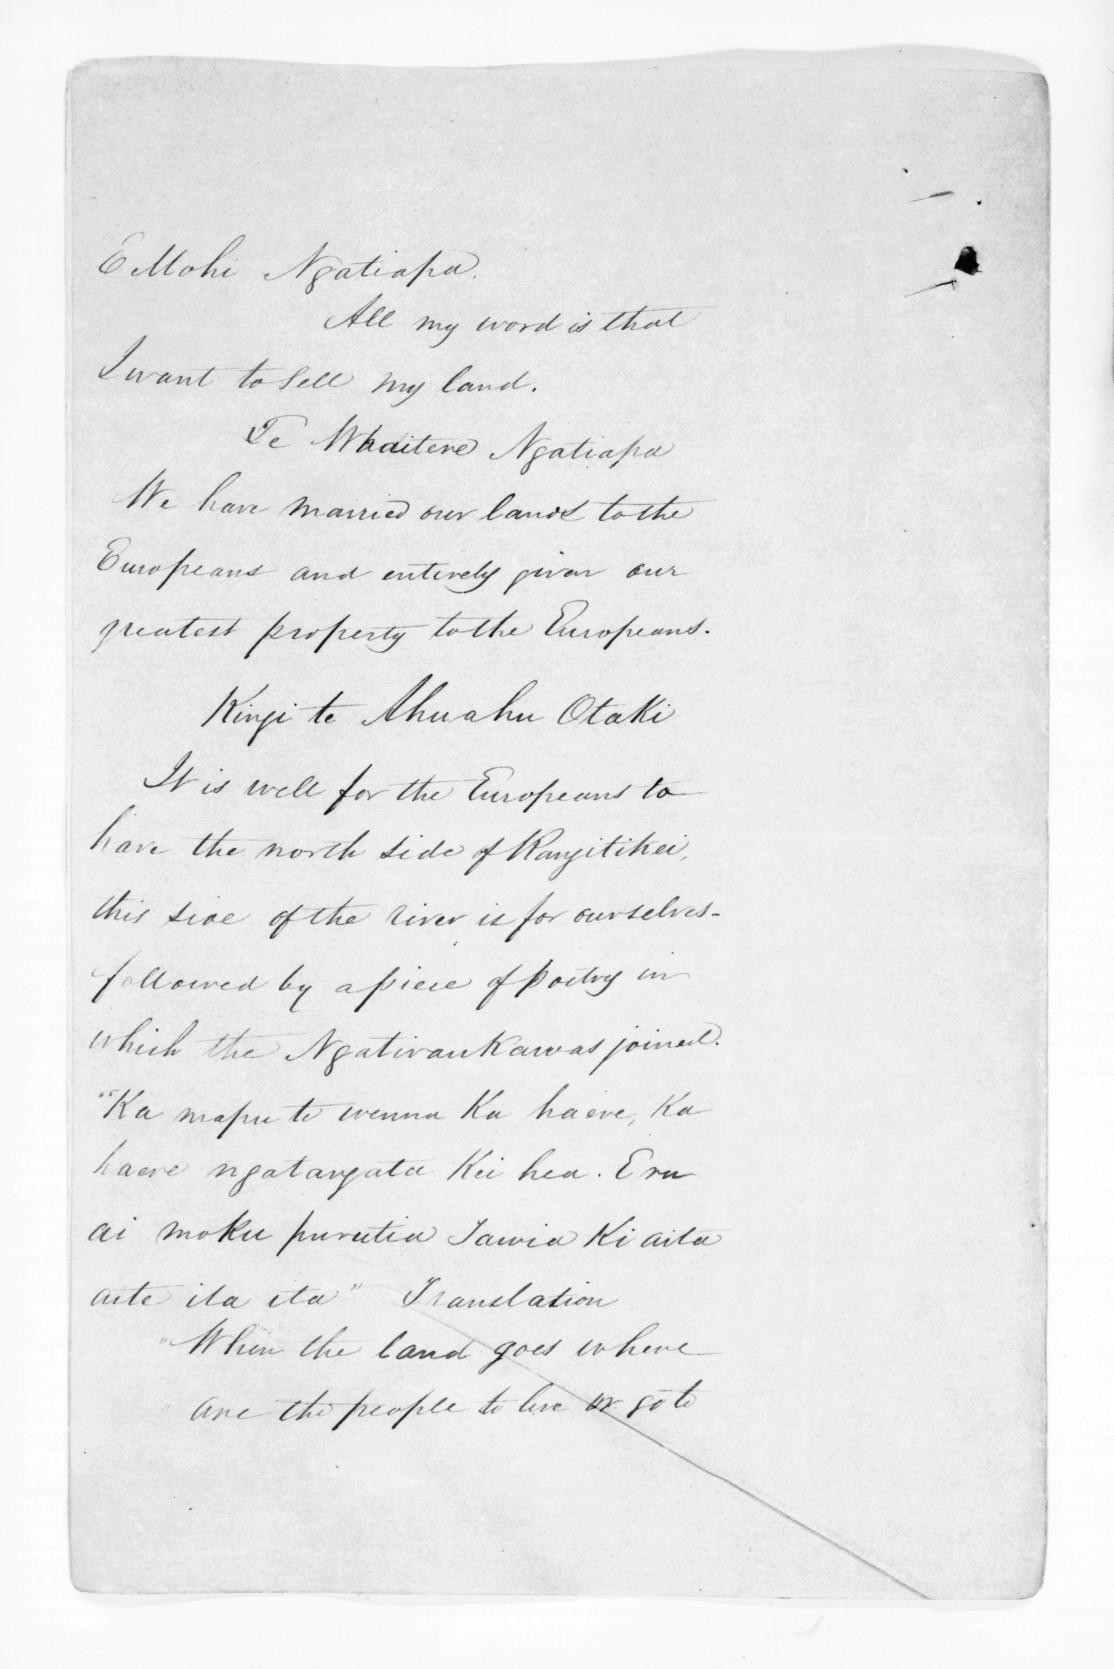 E Mohi Ngatiapa.
All my word is that
I want to sell my land.
Te Whaitere Ngatiapa
We have married our lands to the
Europeans and entirely given our
greatest property to the Europeans.
Kingi te Ahuahu Otaki
It is well for the Europeans to
have the north side of Rangitikei,
this side of the river is for ourselves-
followed by a piece of poetry in
which the Ngatiraukawas joined.
"Ka mapu te wenua Ka haere, Ka
haere ngatangata Kei hea. E ru
ai moku purutia Tawia Ki aita
aite ita ita" Translation
"When the land goes where
are the people to live or go to